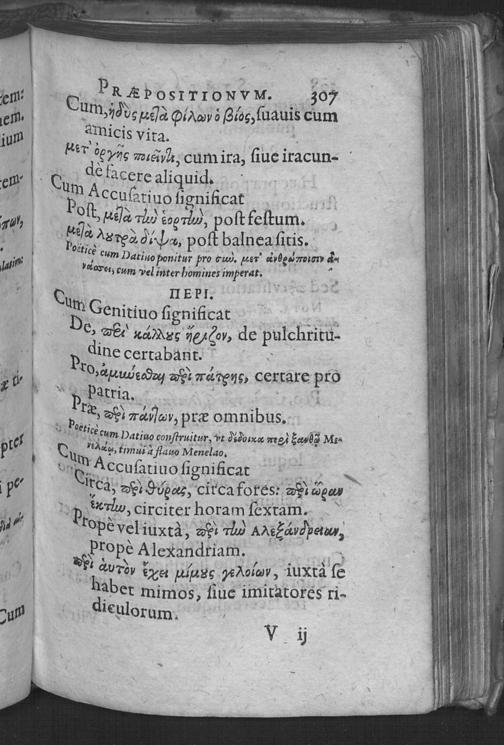 PRÆPOSITIONVM. 307
Cum, ἡδὺς μετὰ φίλων ὁ βίος, suauis cum
amicis vita.
μετ' ὀργῆς ποιεῖν τι, cum ira, siue iracun-
dè facere aliquid.
Cum Accusatiuo significat
Post, μετὰ τὴν ἑορτὴν, post festum.
μετὰ λουτρὰ δίψα, post balnea sitis.
Poëticè cum Datiuo ponitur pro σὺν. μετ' ἀνθρώποισιν ἀ-
νάσσει, cum vel inter homines imperat.
ΠΕΡΙ.
Cum Genitiuo significat
De, περὶ κάλλους ἤριζον, de pulchritu-
dine certabant.
Pro, ἀμύνεσθαι περὶ πάτρης, certare pro
patria.
Præ, περὶ πάντων, præ omnibus.
Poëticè cum Datiuo construitur, vt δείδοικα περὶ ξανθῷ Με-
νελάῳ, timui à flauo Menelao.
Cum Accusatiuo significat
Circa, περὶ θύρας, circa fores: περὶ ὥραν
ἕκτην, circiter horam sextam.
Propè vel iuxtà, περὶ τὴν Αλεξάνδρειαν,
propè Alexandriam.
περὶ αὑτὸν ἔχει μίμους γελοίων, iuxtà se
habet mimos, siue imitatores ri-
diculorum.
V ij